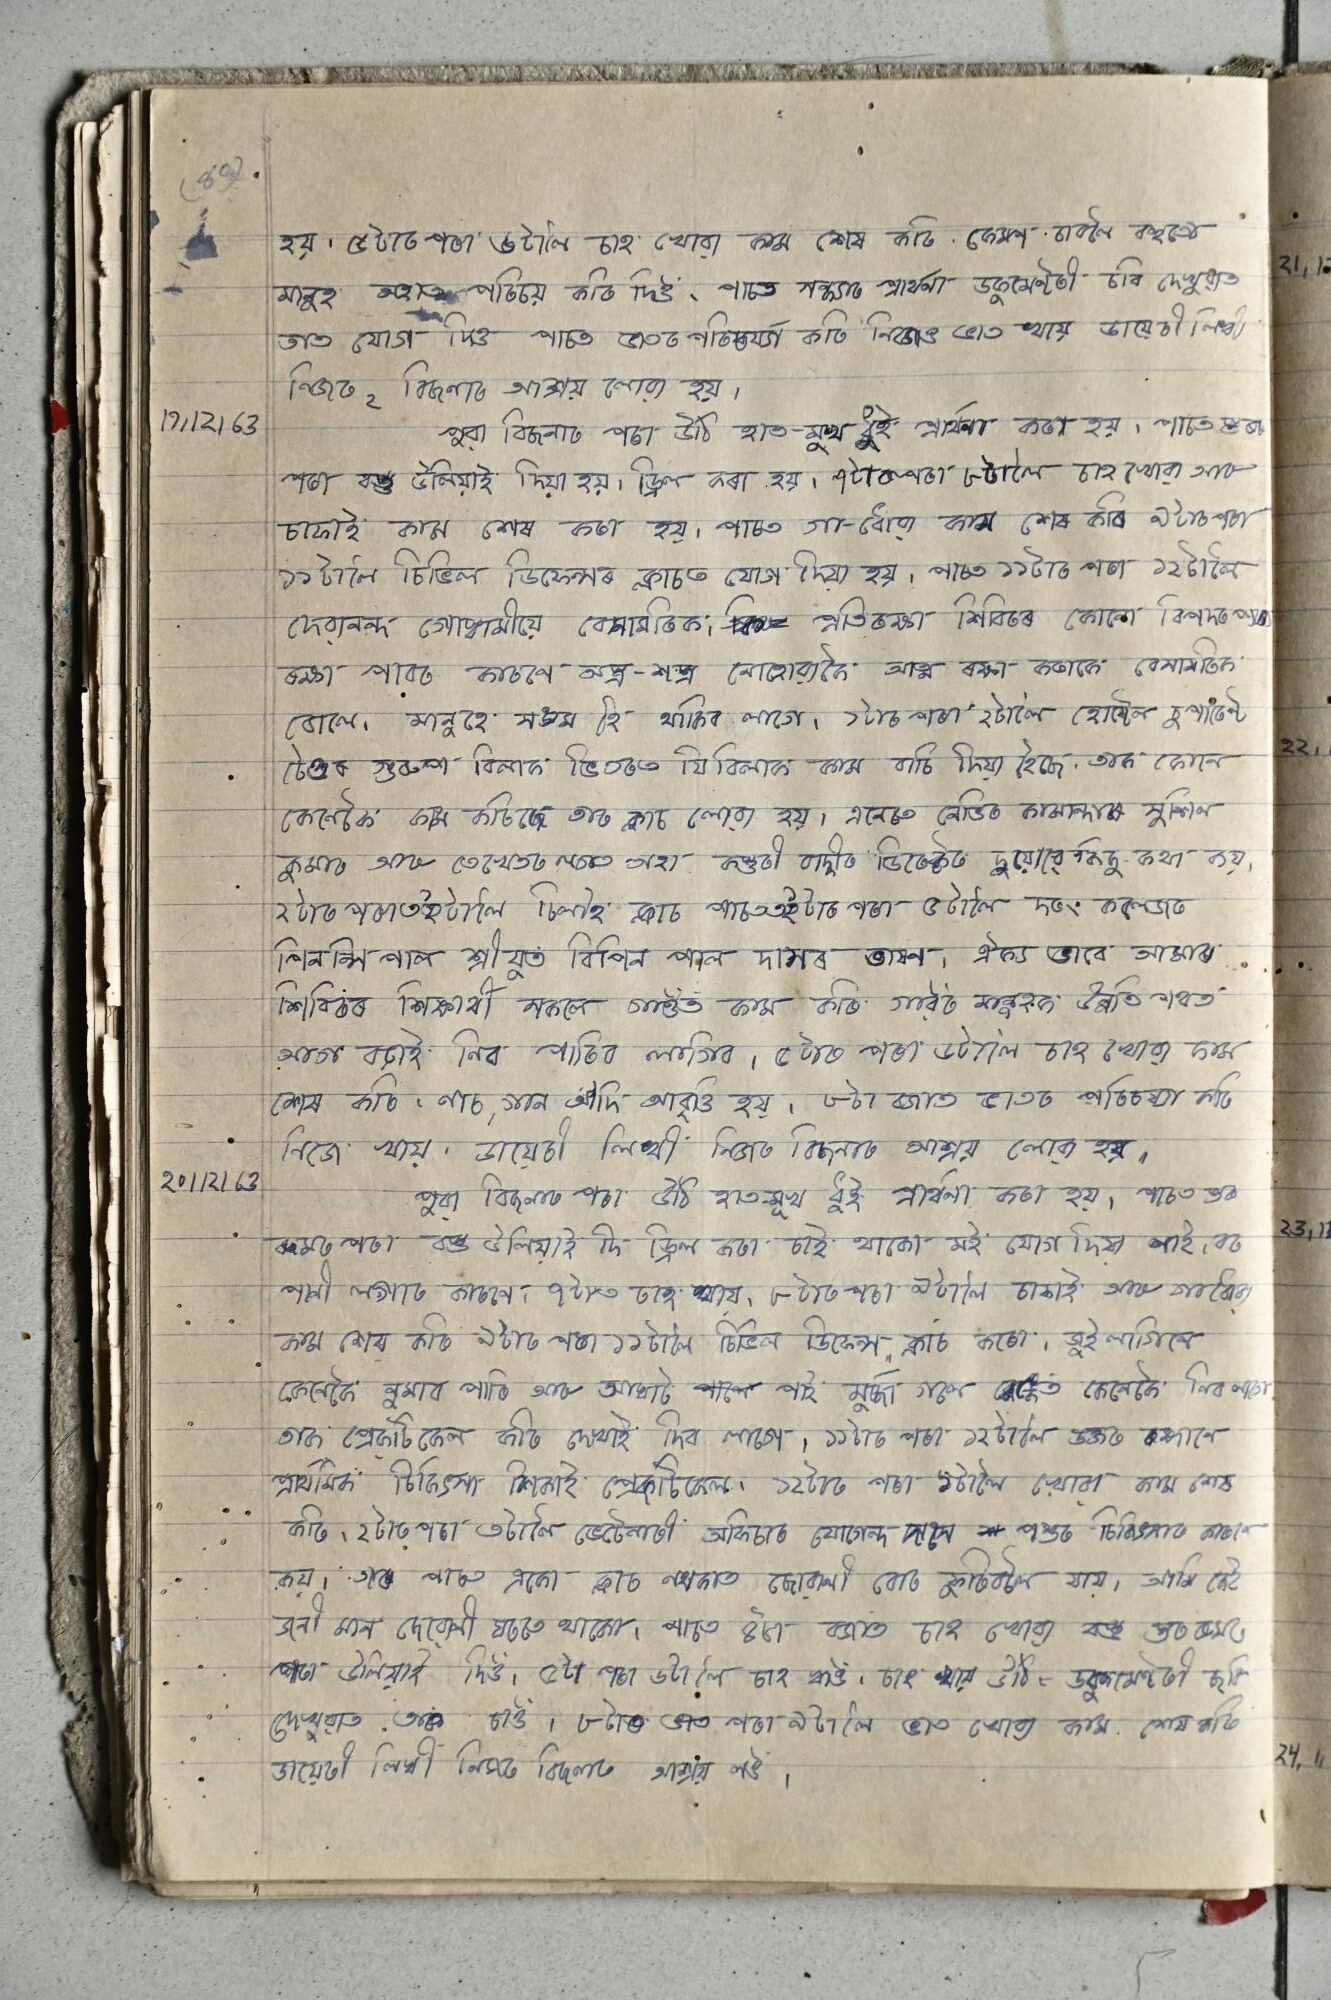 হয়। ৫টাৰ পৰা ৬টালৈ চাহ খোৱা কাম শেষ কৰি
মানুহ পৰিচয় কৰি দিওঁ। পাচত সন্ধ্যাত প্ৰাৰ্থনা ডকুমেণ্টৰী চবি দেখুৱাত
তাত যোগ দিও পাচত ভাতৰ পৰিচৰ্য্যা কৰি নিজেও ভাত খায় ডায়েৰী লিখী
নিজৰ বিচনাত আশ্ৰয় লোৱা হয়।
19/12/63
পুৱা বিচনাৰ পৰা উঠি হাত-মুখ ধুই প্ৰাৰ্থনা কৰা হয়। পাচত
পৰা বস্তু উলিয়াই দিয়া হয়। ড্ৰিল কৰা হয়। ৭টাৰ পৰা ৮টালৈ চাহ খোৱা আৰু
চাফাই কাম শেষ কৰা হয়। পাচত গা-ধোৱা কাম শেষ কৰি ৯টাৰ পৰা
১১টালৈ চিভিল ডিফেন্সৰ ক্লাচত যোগ দিয়া হয়। পাচত ১১টাৰ পৰা ১২টালৈ
দেৱানন্দ গোস্বামীয়ে বেসামৰিক প্ৰতিৰক্ষা শিবিৰৰ কোনো বিপদৰ পৰা
ৰক্ষা পাবৰ কাৰণে অস্ত্ৰ-শস্ত্ৰ নোহোৱাকৈ আত্ম ৰক্ষা কৰাকে বেসামৰিক
বোলে। মানুহে সক্ষম হি থাকিব লাগে। ১টাৰ পৰা ২টালৈ হোষ্টেল চুপাৰেণ্ট
টেণ্ডৰ গ্ৰুপ বিলাক ভিতৰত যিবিলাক কাম বাচি দিয়া হৈছে তাক কোনে
কেনেকৈ কাম কৰিছে তাৰ ক্লাচ লোৱা হয়। এনেতে নেভিৰ কামান্দাৰ সুশিল
কুমাৰ আৰু তেখেতৰ লগত অহা কস্তুৰী বাদীৰ ডিৰেক্টৰ দুয়োৱে কিছু কথা কয়।
২টাৰ পৰা ৩ইটালৈ চিলাই ক্লাচ পাচত ৩ইটাৰ পৰা ৫টালৈ দৰং কলেজৰ
পিনন্সিপাল শ্ৰীযুত বিপিন পাল দাসৰ ভাষণ। ঐক্য ভাবে আমাৰ
শিবিৰৰ শিক্ষাৰ্থী সকলে গাওঁত কাম কৰি গাৱঁৰ মানুহক উন্নতি পথত
আগ বঢ়াই নিব পাৰিব লাগিব। ৫টাৰ পৰা ৬টালৈ চাহ খোৱা কাম
শেষ কৰি। নাচ, গান আদি আবৃত্তি হয়। ৮টা বজাত ভাতৰ পৰিচৰ্য্যা কৰি
নিজে খায়। ডায়েৰী লিখী নিজৰ বিচনাত আশ্ৰয় লোৱা হয়।
20/12/63
পুৱা বিচনাৰ পৰা উঠি হাত-মুখ ধুই প্ৰাৰ্থনা কৰা হয়। পাচত ষ্টৰ
ৰুমৰ পৰা বস্তু উলিয়াই দি ড্ৰিল কৰা চাই থাকো মই যোগ দিয়া নাই। বৰ
পানী লগাৰ কাৰণে। ৭টাত চাহ খায়। ৮টাৰ পৰা ৯টালৈ চাফাই আৰু গাধোৱা
কাম শেষ কৰি ৯টাৰ পৰা ১১টালৈ চিভিল ডিফেন্স ক্লাচ কৰো। জুই লাগিলে
কেনেকৈ নুমাব পাৰি আৰু আঘাট পাই মুৰ্চ্ছা গলে কেনেকৈ নিব লাগে
তাক প্ৰেকটিকেল কৰি দেখাই দিব লাগে। ১১টাৰ পৰা ১২টালৈ ডক্তৰ
প্ৰাথমিক চিকিৎসা শিকাই প্ৰেকটিকেল। ১২টাৰ পৰা ১টালৈ খোৱা কাম শেষ
কৰি। ২টাৰ পৰা ৩টালৈ ভেটেনাৰী অফিচাৰ যোগেন্দ দাসে পশুৰ চিকিৎসাৰ কাৰণে
কয়। তাৰ পাচত একো ক্লাচ নথকাত জোৱানী বোৰ ফুৰিবলৈ যায়। আমি কেই
জনী মান দেৱোনী ঘৰতে থাকো। পাচত ৪টা বজাত চাহ খোৱা বস্তু ষ্টৰ ৰুমৰ
পৰা উলিয়াই দিওঁ। ৫টা পৰা ৬টালৈ চাহ খাওঁ। চাহ খায় উঠি ডকুমেণ্টৰী ছবি
দেখুৱাত তাক চাওঁ। ৮টাৰ পৰা ৯টালৈ ভাত খোৱা কাম শেষ কৰি
ডায়েৰী লিখী নিজৰ বিচনাত আশ্ৰয় লওঁ।
22,
24,